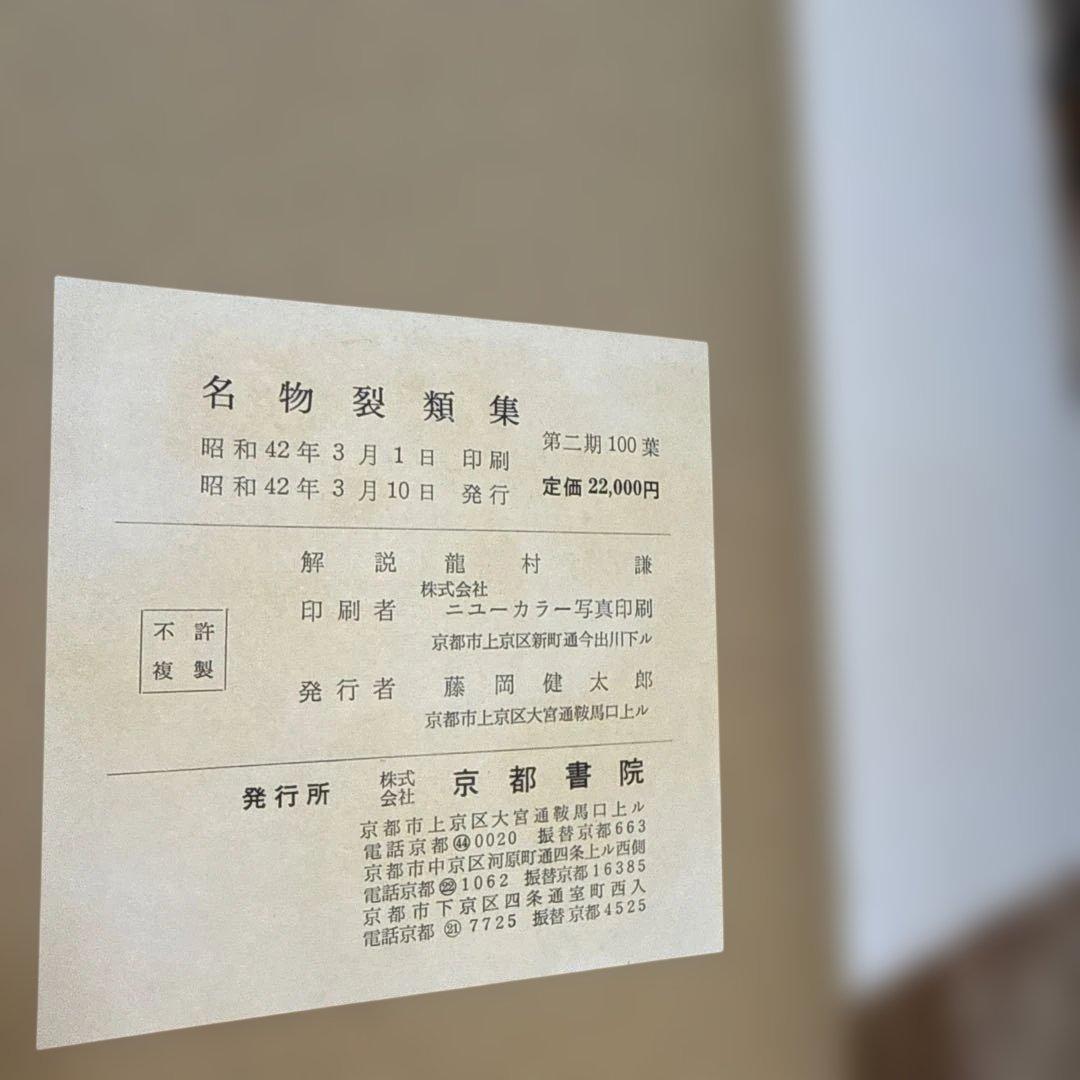 名物裂類集
昭和42年3月1日 印刷 第二期100葉
昭和42年3月10日 発行 定価22,000円
解説 龍村謙
株式会社
印刷者 ニユーカラー写真印刷
京都市上京区新町通今出川下ル
不許
複製
発行者 藤岡健太郎
京都市上京区大宮通鞍馬口上ル
発行所 株式会社 京都書院
京都市上京区大宮通鞍馬口上ル
電話京都㊹0020 振替京都663
京都市中京区河原町通四条上ル西側
電話京都㉒1062 振替京都16385
京都市下京区四条通室町西入
電話京都㉑7725 振替京都4525